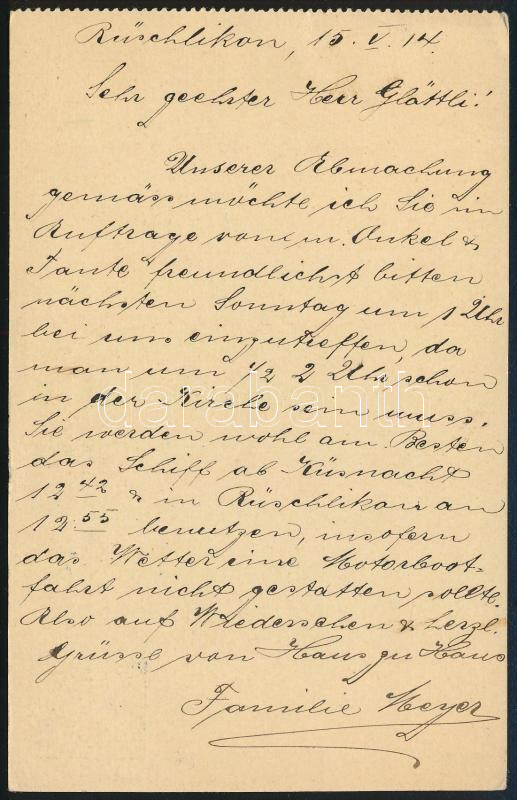 Rüschlikon, 15. V. 14.
Sehr geehrter Herr Glättli!
Unserer Abmachung
gemäss möchte ich Sie im
Auftrage von m. Onkel &
Tante freundlichst bitten
nächsten Sonntag um 1 Uhr
bei uns einzutreffen, da
man um 1/2 2 Uhr schon
in der Kirche sein muss.
Sie werden wohl am Besten
das Schiff ab Küsnacht
12 42 & in Rüschlikon an
12.55 benutzen, insofern
das Wetter eine Motorboot-
fahrt nicht gestatten sollte.
Also auf Wiedersehen & herzl.
Grüsse von Haus zu Haus
Familie Meyer
darabanth